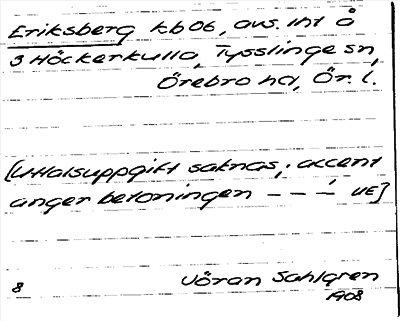 Eriksberg kb 06, avs. int å
3 Höckerkulla, Tysslinge sn,
Örebro hd, Ör. l.
[Uttalsuppgift saknas; accent
anger betoningen – – –́ UE]
8 Jöran Sahlgren
1908